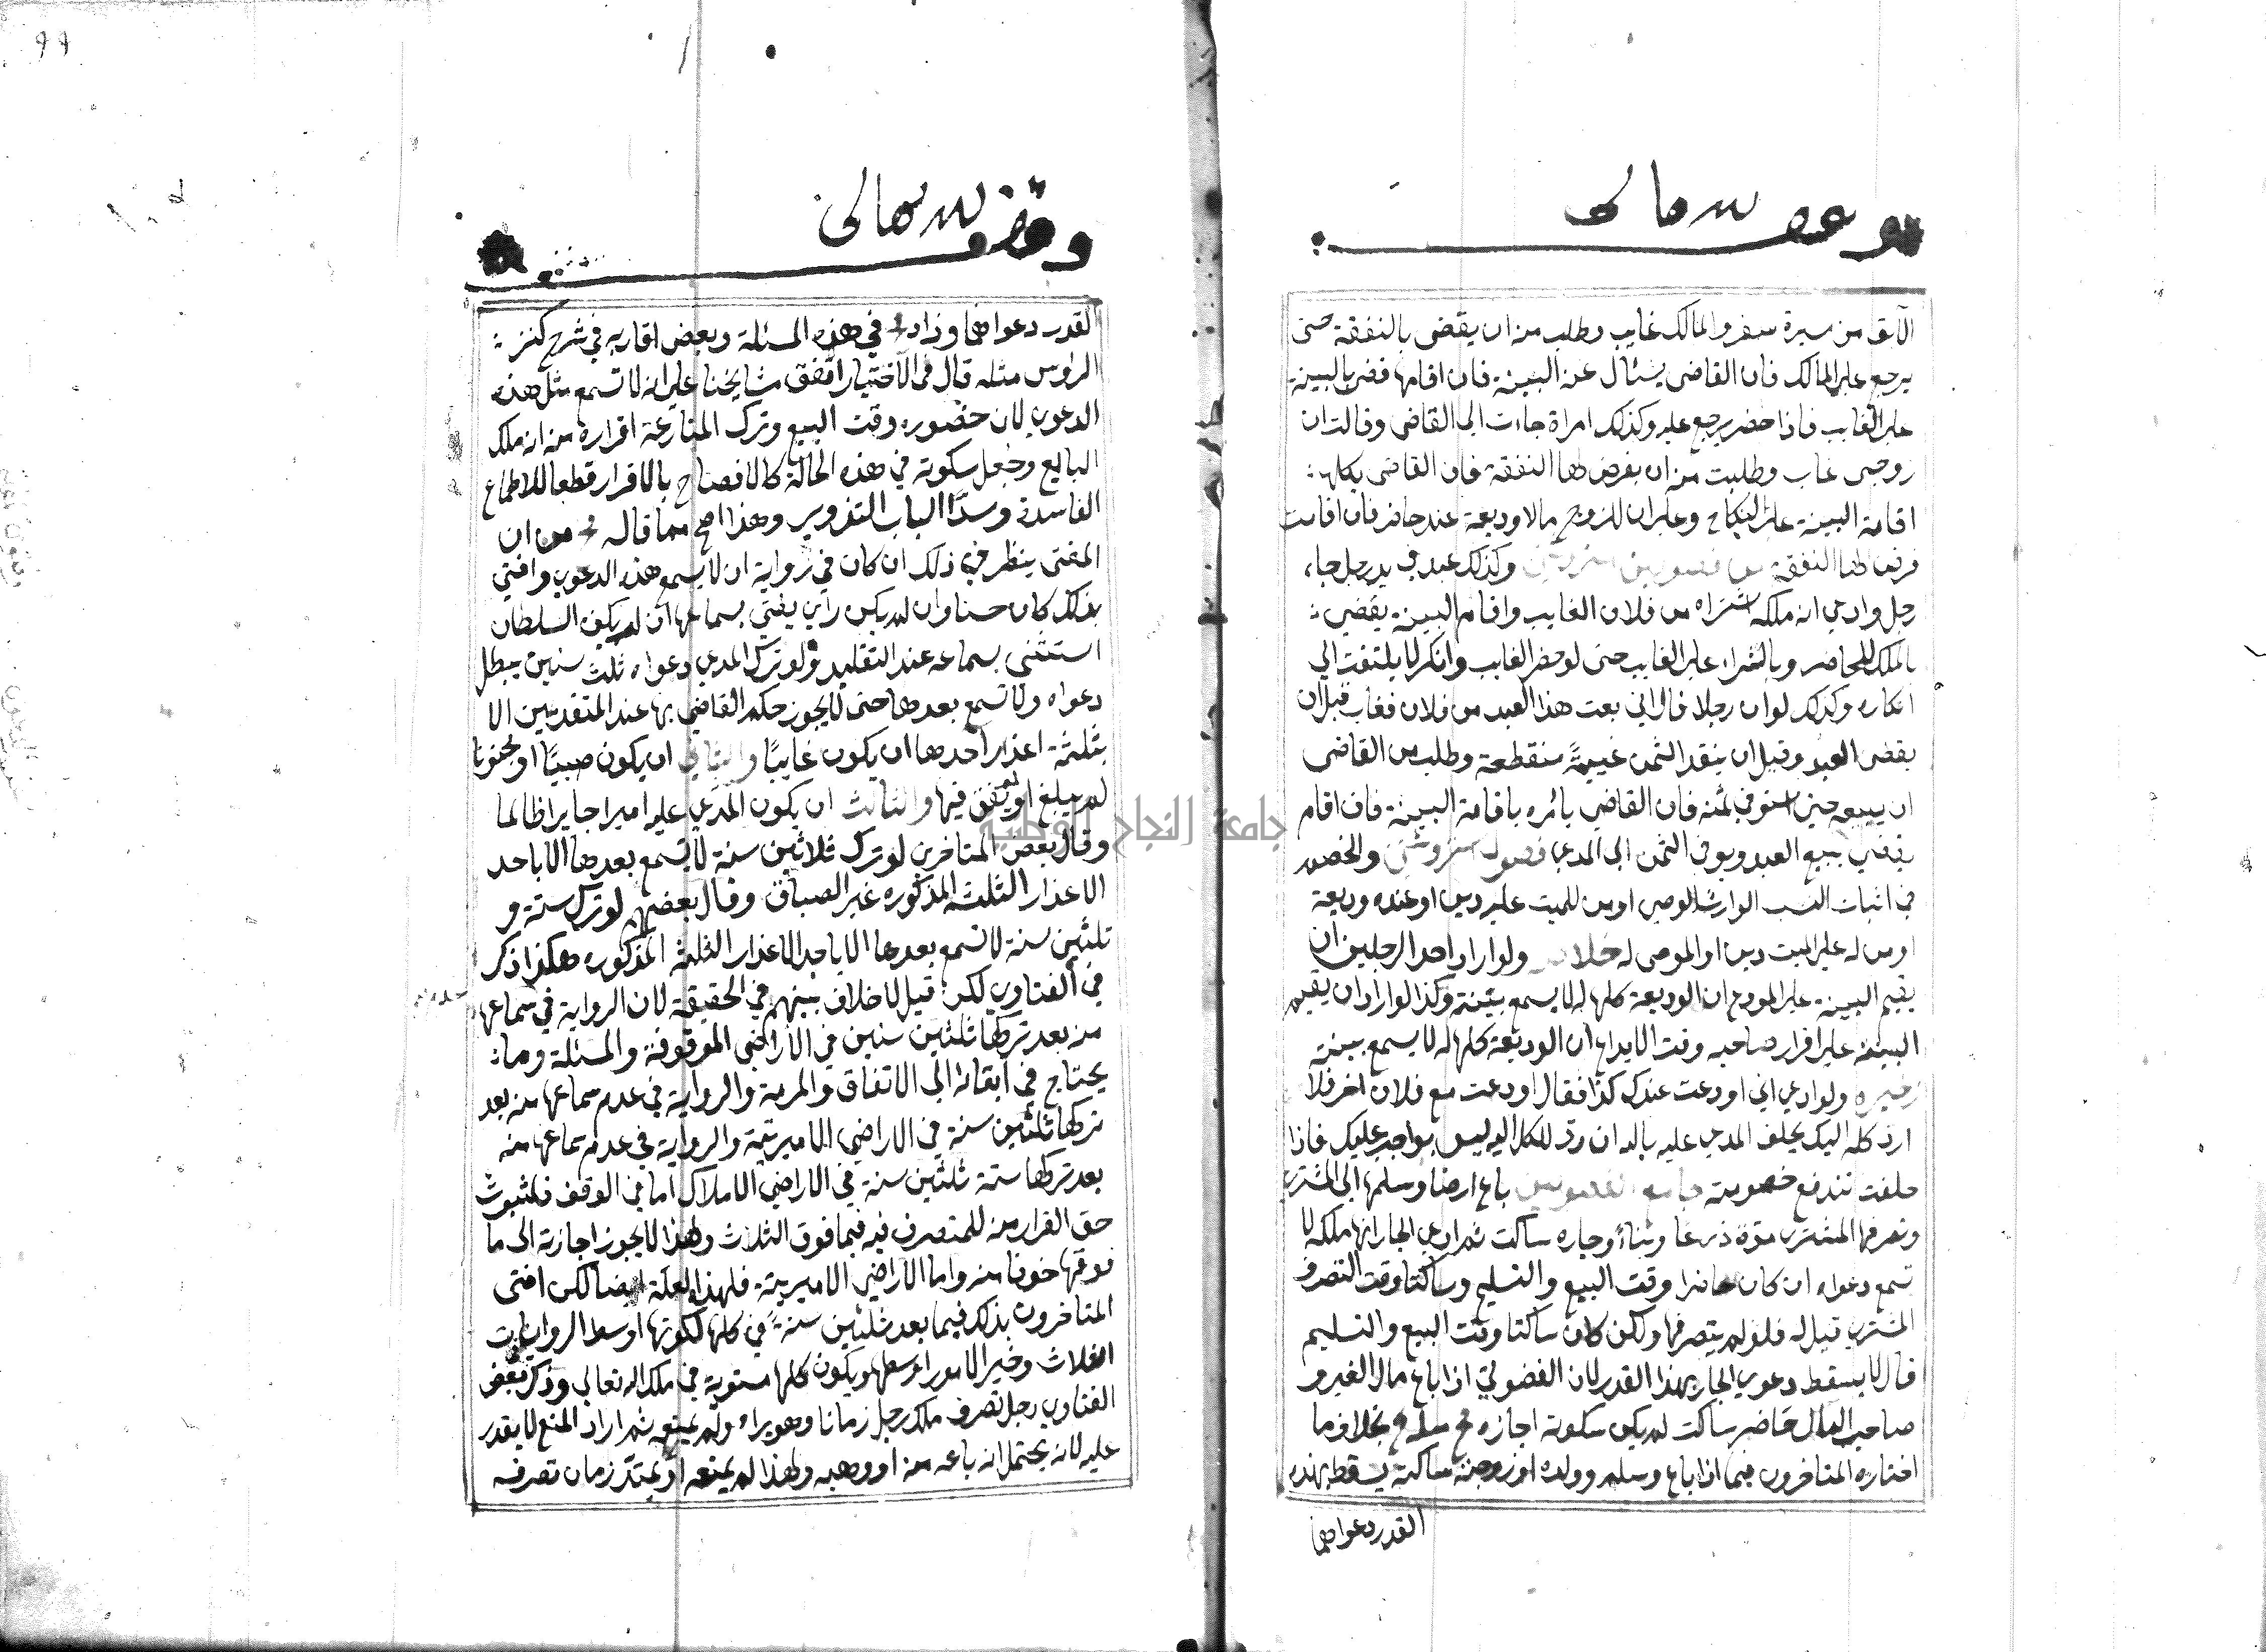 وقف لله تعالى
الآبق من مسيرة سفر والمالك غايب وطلب منه ان يقضى بالنفقة حتى
يرجع على المالك فان القاضى يسئال عنه البينة فان اقامها قضى بالبينة
على الغايب فاذا حضر يرجع عليه وكذلك امراة جاءت الى القاضى وقالت ان
زوجى غاب وطلبت منه ان يفرض لها النفقة فان القاضى يكلف
اقامة البينة على النكاح وعلى ان للزوج مالا وديعة عند حاضر فان اقامت
فرض لها النفقة وكذلك عبد في يد رجل جاء
رجل وادعي انه ملكه اشتراه من فلان الغايب واقام البينة يقضي
بالملك للحاضر وبالشراء على الغايب حتى لو حضر الغايب وانكر لا يلتفت الي
انكاره وكذلك لو ان رجلا قال اني بعت هذا العبد من فلان فغاب قبل ان
يقضى العبد وقبل ان ينقد الثمن غيبةً منقطعة وطلب من القاضى
ان يبيعه حتى استوفي ثمنه فان القاضي يأمره باقامة البينة فان اقام
يقضي ببيع العبد ويوفى الثمن الى المدعي والخصم
في اثبات النسب الوارث الوصى او من للميت عليه دين او عنده وديعة
او من له على الميت دين او الموصى له ولو اراد احد الرجلين ان
يقيم البينة على المودع ان الوديعة كلها له لا يسمع بينته وكذا لو اراد ان يقيم
البينة على اقرار صاحبه وقت الايداع ان الوديعة كلها له لا يسمع بينته
ولو ادعي اني اودعت عندك كذا فقال اودعت مع فلان اخر فلا
ارد كله اليك يحلف المدعى عليه بالله ان رد الكل اليه ليس بواجب عليك فاذا
حلفت تندفع خصومته باع ارضا وسلمها الى المشتري
وتصرفها المشترى مدة زرعا وبناءً وجاره ساكت ثم ادعي الجار انها ملكه لا
تسمع دعواه ان كان حاضرا وقت البيع والتسليم وساكتا وقت التصرف
المشتري قيل له فلو لم يتصرفها ولكن كان ساكتا وقت البيع والتسليم
قال لا يسقط دعوي الجار بهذا القدر لان الفضوليّ اذا باع مال الغير و
صاحب المال حاضر ساكت لم يكن سكوته اجازه بخلاف ما
اختاره المتاخرون فيما اذا باع وسلم وولده او زوجته ساكتة يسقط بهذه
القدر دعواهما
٩٩
وقف لله تعالى
القدر دعواهما وزاد في هذه المسئلة وبعض اقاربه في شرح كنز
الرؤس مثله قال في الاختيار اتفق مشايخنا على انه لا تسمع مثل هذه
الدعوي لان حضوره وقت البيع وترك المنازعة اقرار منه انه ملك
البايع وجعل سكوته في هذه الحالة كالافصاح بالاقرار قطعا للاطماع
الفاسدة وسدًّا لباب التزوير وهذا اصح مما قاله من ان
المفتى ينظر في ذلك ان كان في رواية ان لا يسمع هذه الدعوي وافتي
بذلك كان حسنا وان لم يكن راي يفتي بسماعها ان لم يكن السلطان
استثنى بسماعه عند التقليد ولو ترك المدعي دعواه ثلث سنين يبطل
دعواه ولا تسمع بعدها حتى لا يجوز حكم القاضي بها عند المتقدمين الا
بثلثة اعذار احدها ان يكون غايبًا والثاني ان يكون صبيًا او مجنونا
لم يبلغ او لم يفق فيها والثالث ان يكون المدعي عليه اميرا جايرا ظالما
وقال بعض المتاخرين لو ترك ثلاثين سنة لا يسمع بعدها الا باحد
الاعذار الثلثة المذكوره غير الصباق وقال بعضهم لو ترك ستة و
ثلثين سنة لا تسمع بعدها الا باحد الاعذار الثلثة المذكوره هكذا ذكر
في الفتاوي لكن قيل لا خلاف بينهم في الحقيقة لان الرواية في سماعها
منه بعد تركها ثلثين سنين في الاراضي الموقوفة والمسئلة وما
يحتاج في ابقائه الى الاتفاق والمرمة والرواية في عدم سماعها منه بعد
تركها ثلثين سنة في الاراضي الاميرية والرواية في عدم سماعها منه
بعد تركها ستة ثلثين سنة في الاراضي الاملاك اما في الوقف فلثبوت
حق القرار منه للمتصرف فيه فيما فوق الثلاث ولهذا لا يجوز اجازته الى ما
فوقها خوفا منه واما الاراضي الاميرية فلهذه العلة ايضا لكن افتى
المتاخرون بذلك فيما بعد ثلثين سنةً في كلها لكونها اوسط الروايات
الثلاث وخير الامور اوسطها ويكون كلها مستوية في ملك الله تعالي وذكر في بعض
الفتاوي رجل تصرف ملك رجل زمانا وهو يراه ولم يمنعه ثم اراد المنع لا يقدر
عليه لانه يحتمل انه باعه منه او وهبه ولهذا لم يمنعه او يمتدّ زمان تصرفه
جامعة النجاح الوطنية